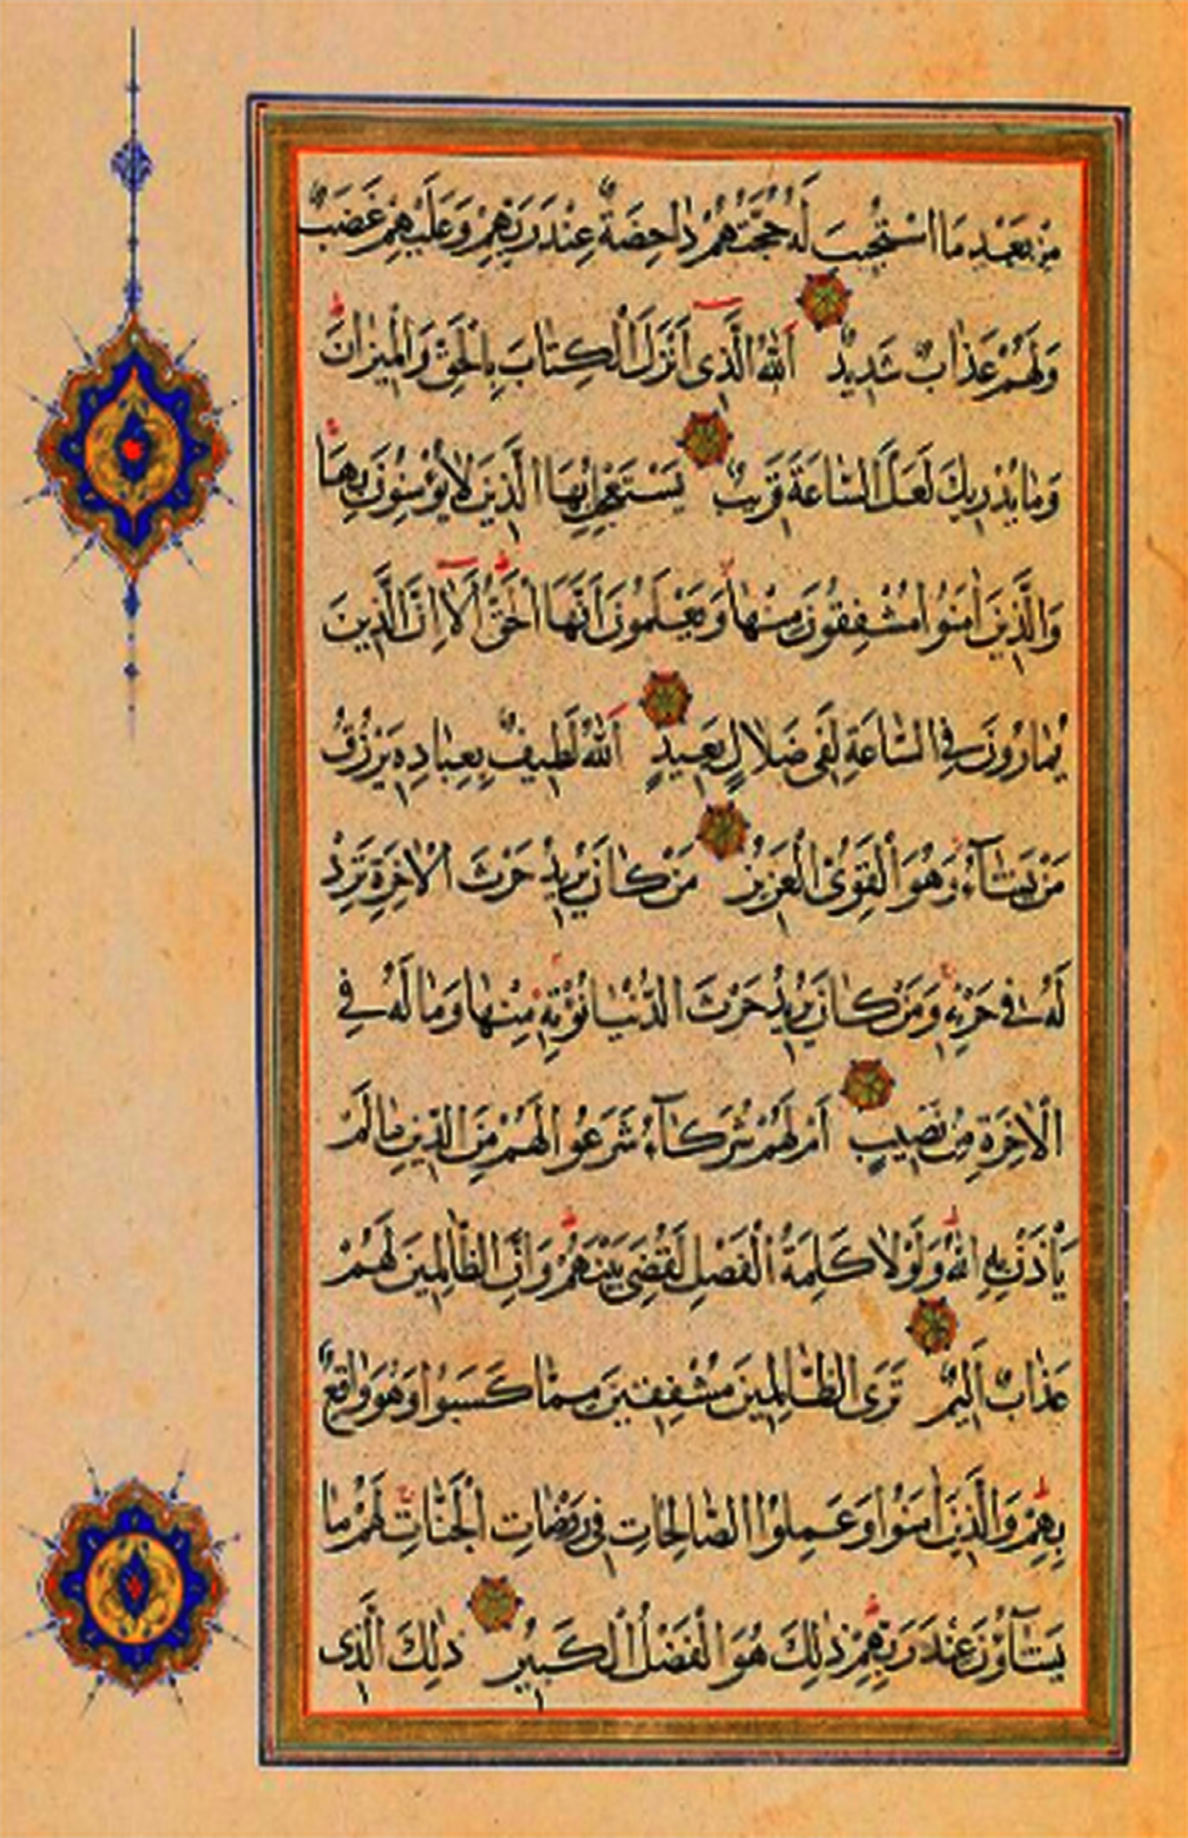 مِنْ بَعْدِ مَا اسْتُجِيبَ لَهُ حُجَّتُهُمْ دَاحِضَةٌ عِنْدَ رَبِّهِمْ وَعَلَيْهِمْ غَضَبٌ
وَلَهُمْ عَذَابٌ شَدِيدٌ اَللّٰهُ الَّذِى اَنْزَلَ الْكِتَابَ بِالْحَقِّ وَالْمِيزَانَ
وَمَا يُدْرِيكَ لَعَلَّ السَّاعَةَ قَرِيبٌ يَسْتَعْجِلُ بِهَا الَّذِينَ لَا يُؤْمِنُونَ بِهَا
وَالَّذِينَ اٰمَنُوا مُشْفِقُونَ مِنْهَا وَيَعْلَمُونَ اَنَّهَا الْحَقُّ اَلَا اِنَّ الَّذِينَ
يُمَارُونَ فِى السَّاعَةِ لَفِى ضَلَالٍ بَعِيدٍ اَللّٰهُ لَطِيفٌ بِعِبَادِهِ يَرْزُقُ
مَنْ يَشَآءُ وَهُوَ الْقَوِىُّ الْعَزِيزُ مَنْ كَانَ يُرِيدُ حَرْثَ الْاٰخِرَةِ نَزِدْ
لَهُ فِى حَرْثِهِ وَمَنْ كَانَ يُرِيدُ حَرْثَ الدُّنْيَا نُؤْتِهِ مِنْهَا وَمَا لَهُ فِى
الْاٰخِرَةِ مِنْ نَصِيبٍ اَمْ لَهُمْ شُرَكَآءُ شَرَعُوا لَهُمْ مِنَ الدِّينِ مَا لَمْ
يَأْذَنْ بِهِ اللّٰهُ وَلَوْلَا كَلِمَةُ الْفَصْلِ لَقُضِىَ بَيْنَهُمْ وَاِنَّ الظَّالِمِينَ لَهُمْ
عَذَابٌ اَلِيمٌ تَرَى الظَّالِمِينَ مُشْفِقِينَ مِمَّا كَسَبُوا وَهُوَ وَاقِعٌ
بِهِمْ وَالَّذِينَ اٰمَنُوا وَعَمِلُوا الصَّالِحَاتِ فِى رَوْضَاتِ الْجَنَّاتِ لَهُمْ مَا
يَشَآؤُنَ عِنْدَ رَبِّهِمْ ذٰلِكَ هُوَ الْفَضْلُ الْكَبِيرُ ذٰلِكَ الَّذِى